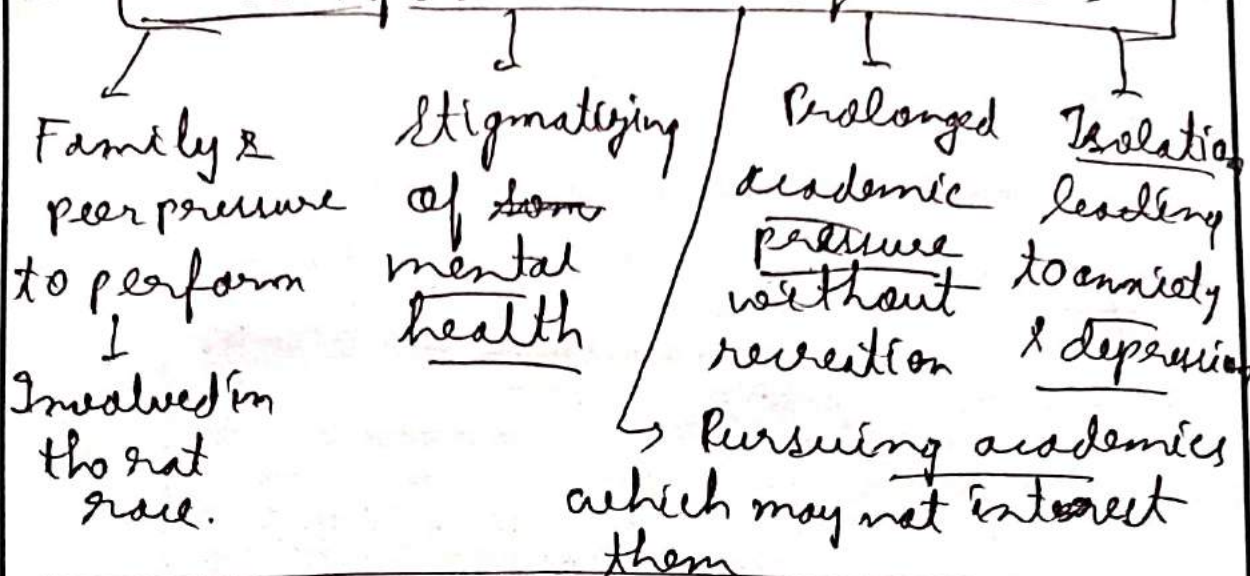 Family &
peer pressure
to perform
Involved in
the rat
race.
Stigmatizing
of som
mental
health
Prolonged
academic
pressure
without
recreation
Isolatio
leading
to anxiety
& depressio
Pursuing academics
which may not interest
them